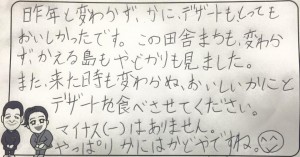 昨年と変わかず、かに、デザートもとっても
おいしかったです。この田舎まちも、変わか
ず、かえる島もやどかりも見ました。
また、来た時も変わかぬ、おいしいかにと
デザートを食べさせてください。
マイナス(ー)はありません。
やっぱり かにはかどやですね。